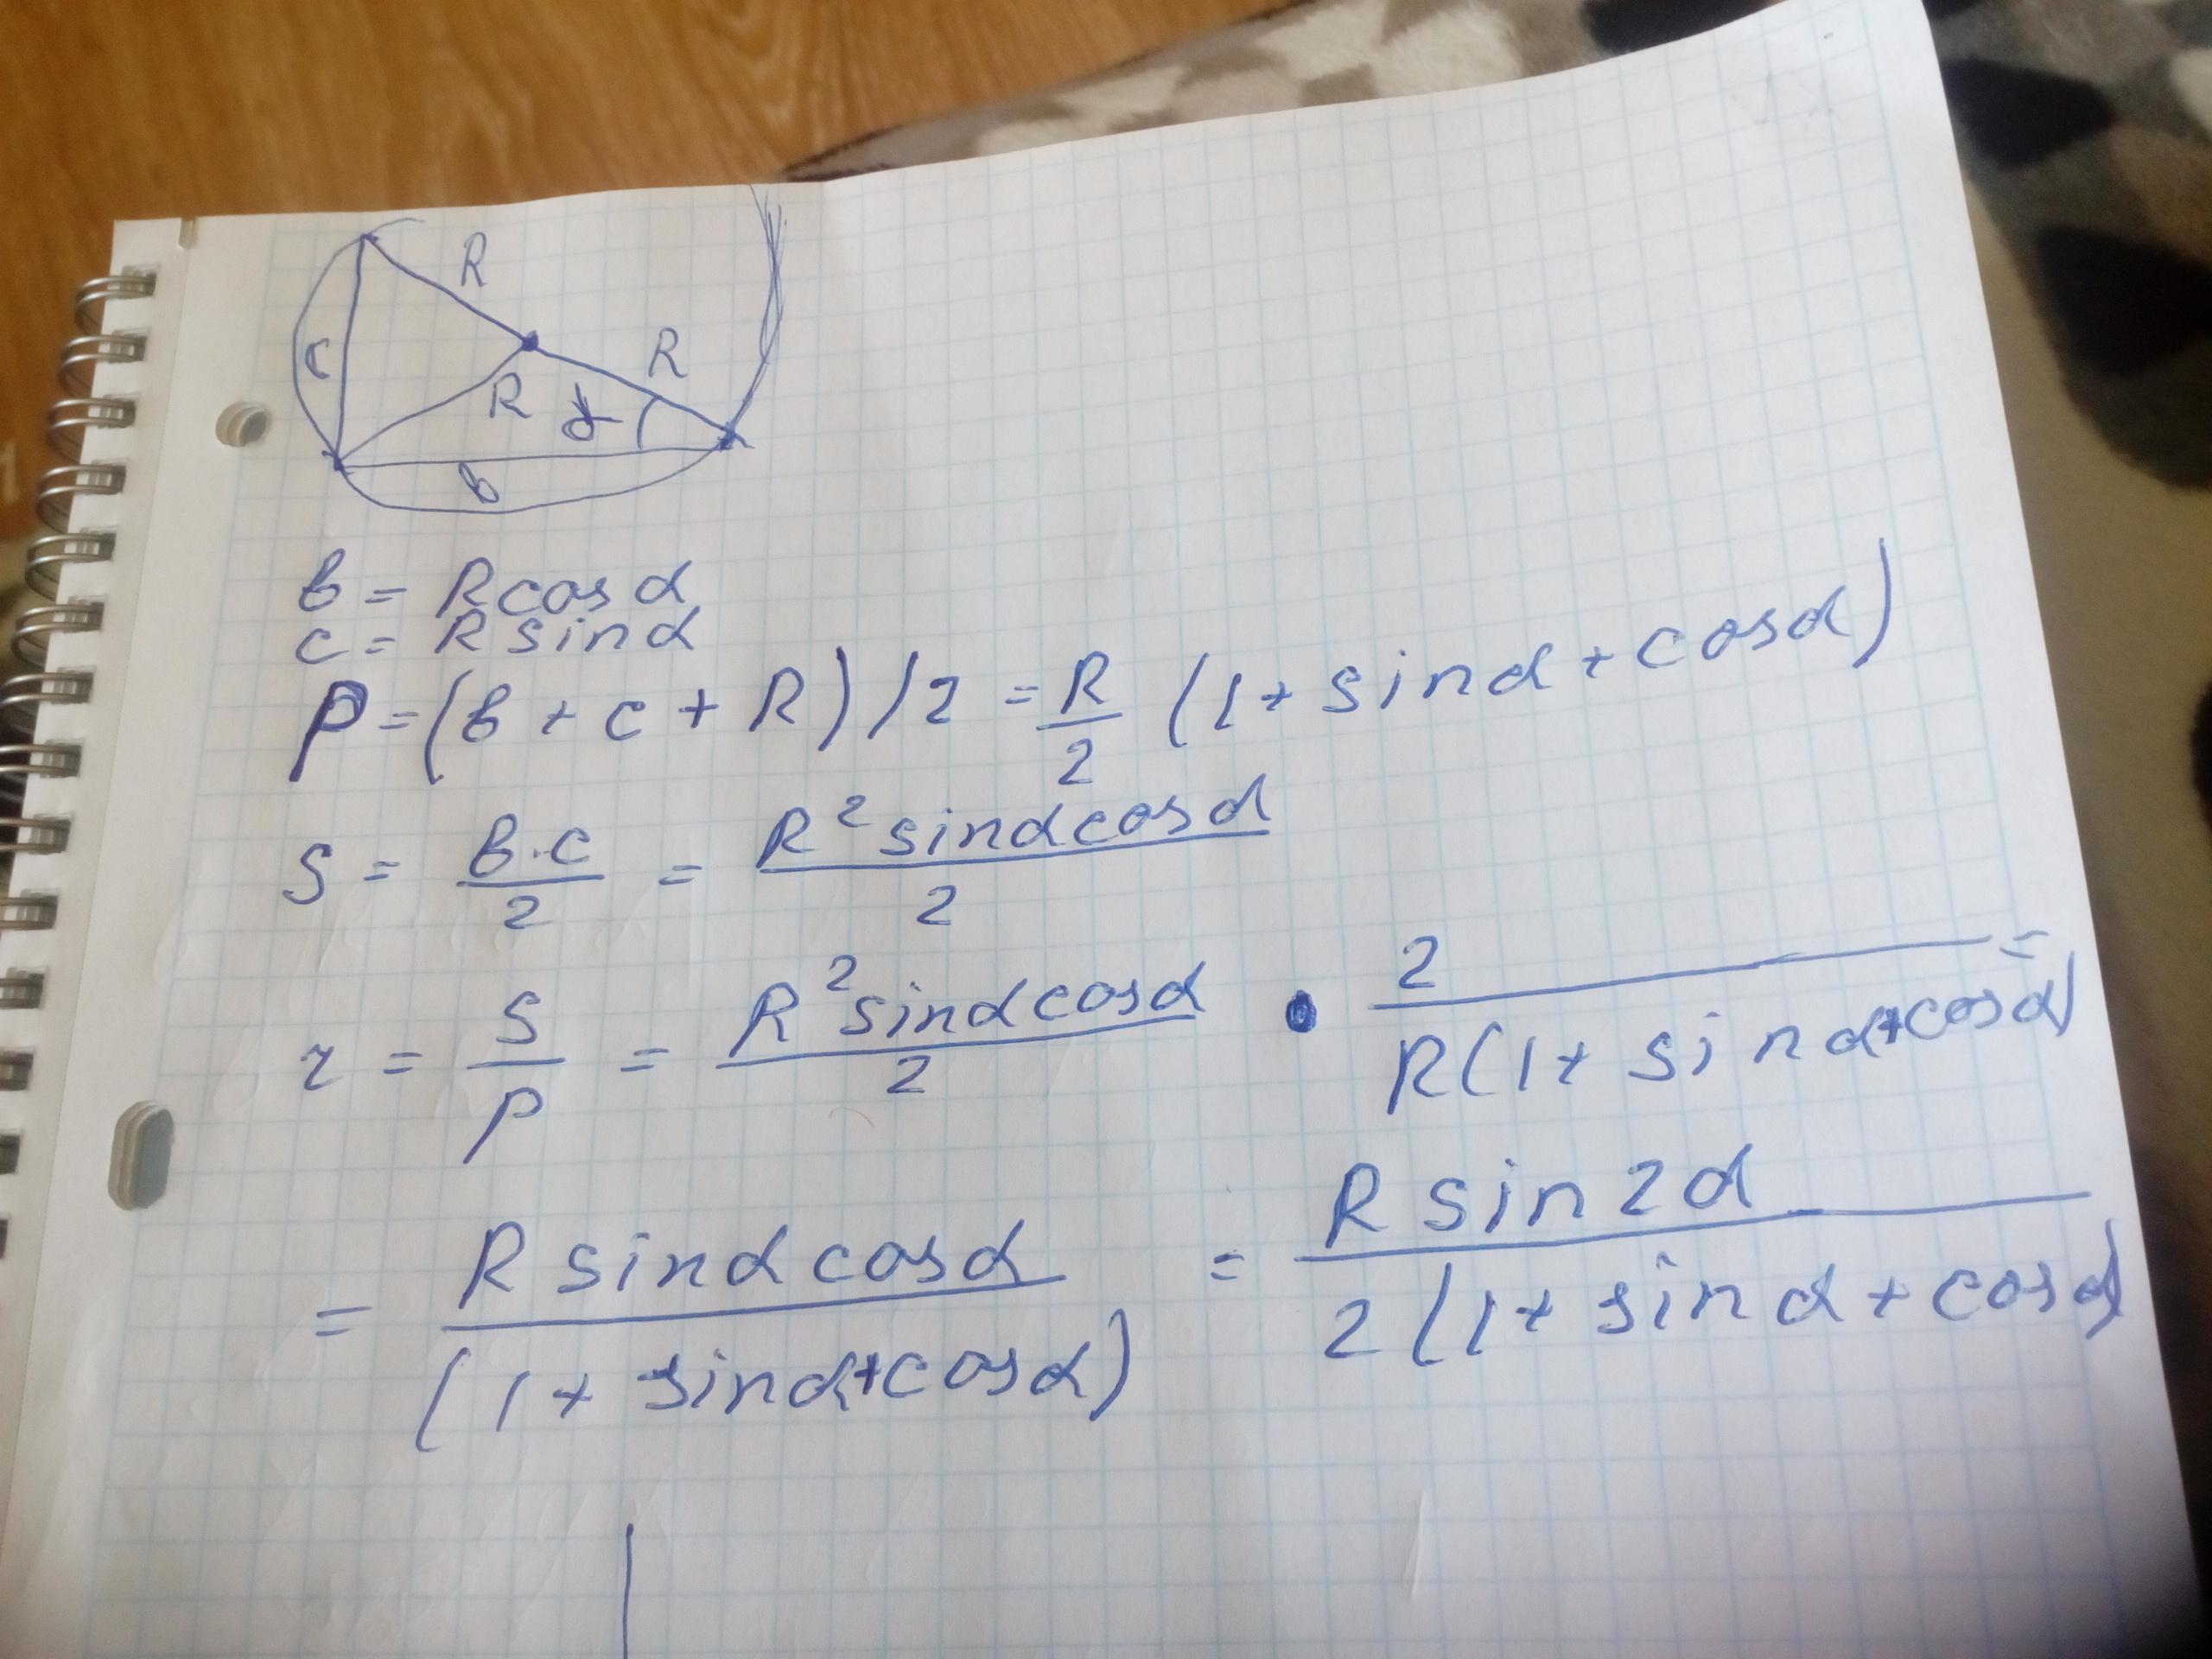 R
c
R
R
α
b
b = R cos α
c = R sin α
p = (b + c + R) / 2 = R/2 (1 + sin α + cos α)
S = b·c/2 = R² sin α cos α / 2
r = S/p = R² sin α cos α / 2 • 2 / R(1 + sin α + cos α) =
= R sin α cos α / (1 + sin α + cos α) = R sin 2α / 2(1 + sin α + cos α)